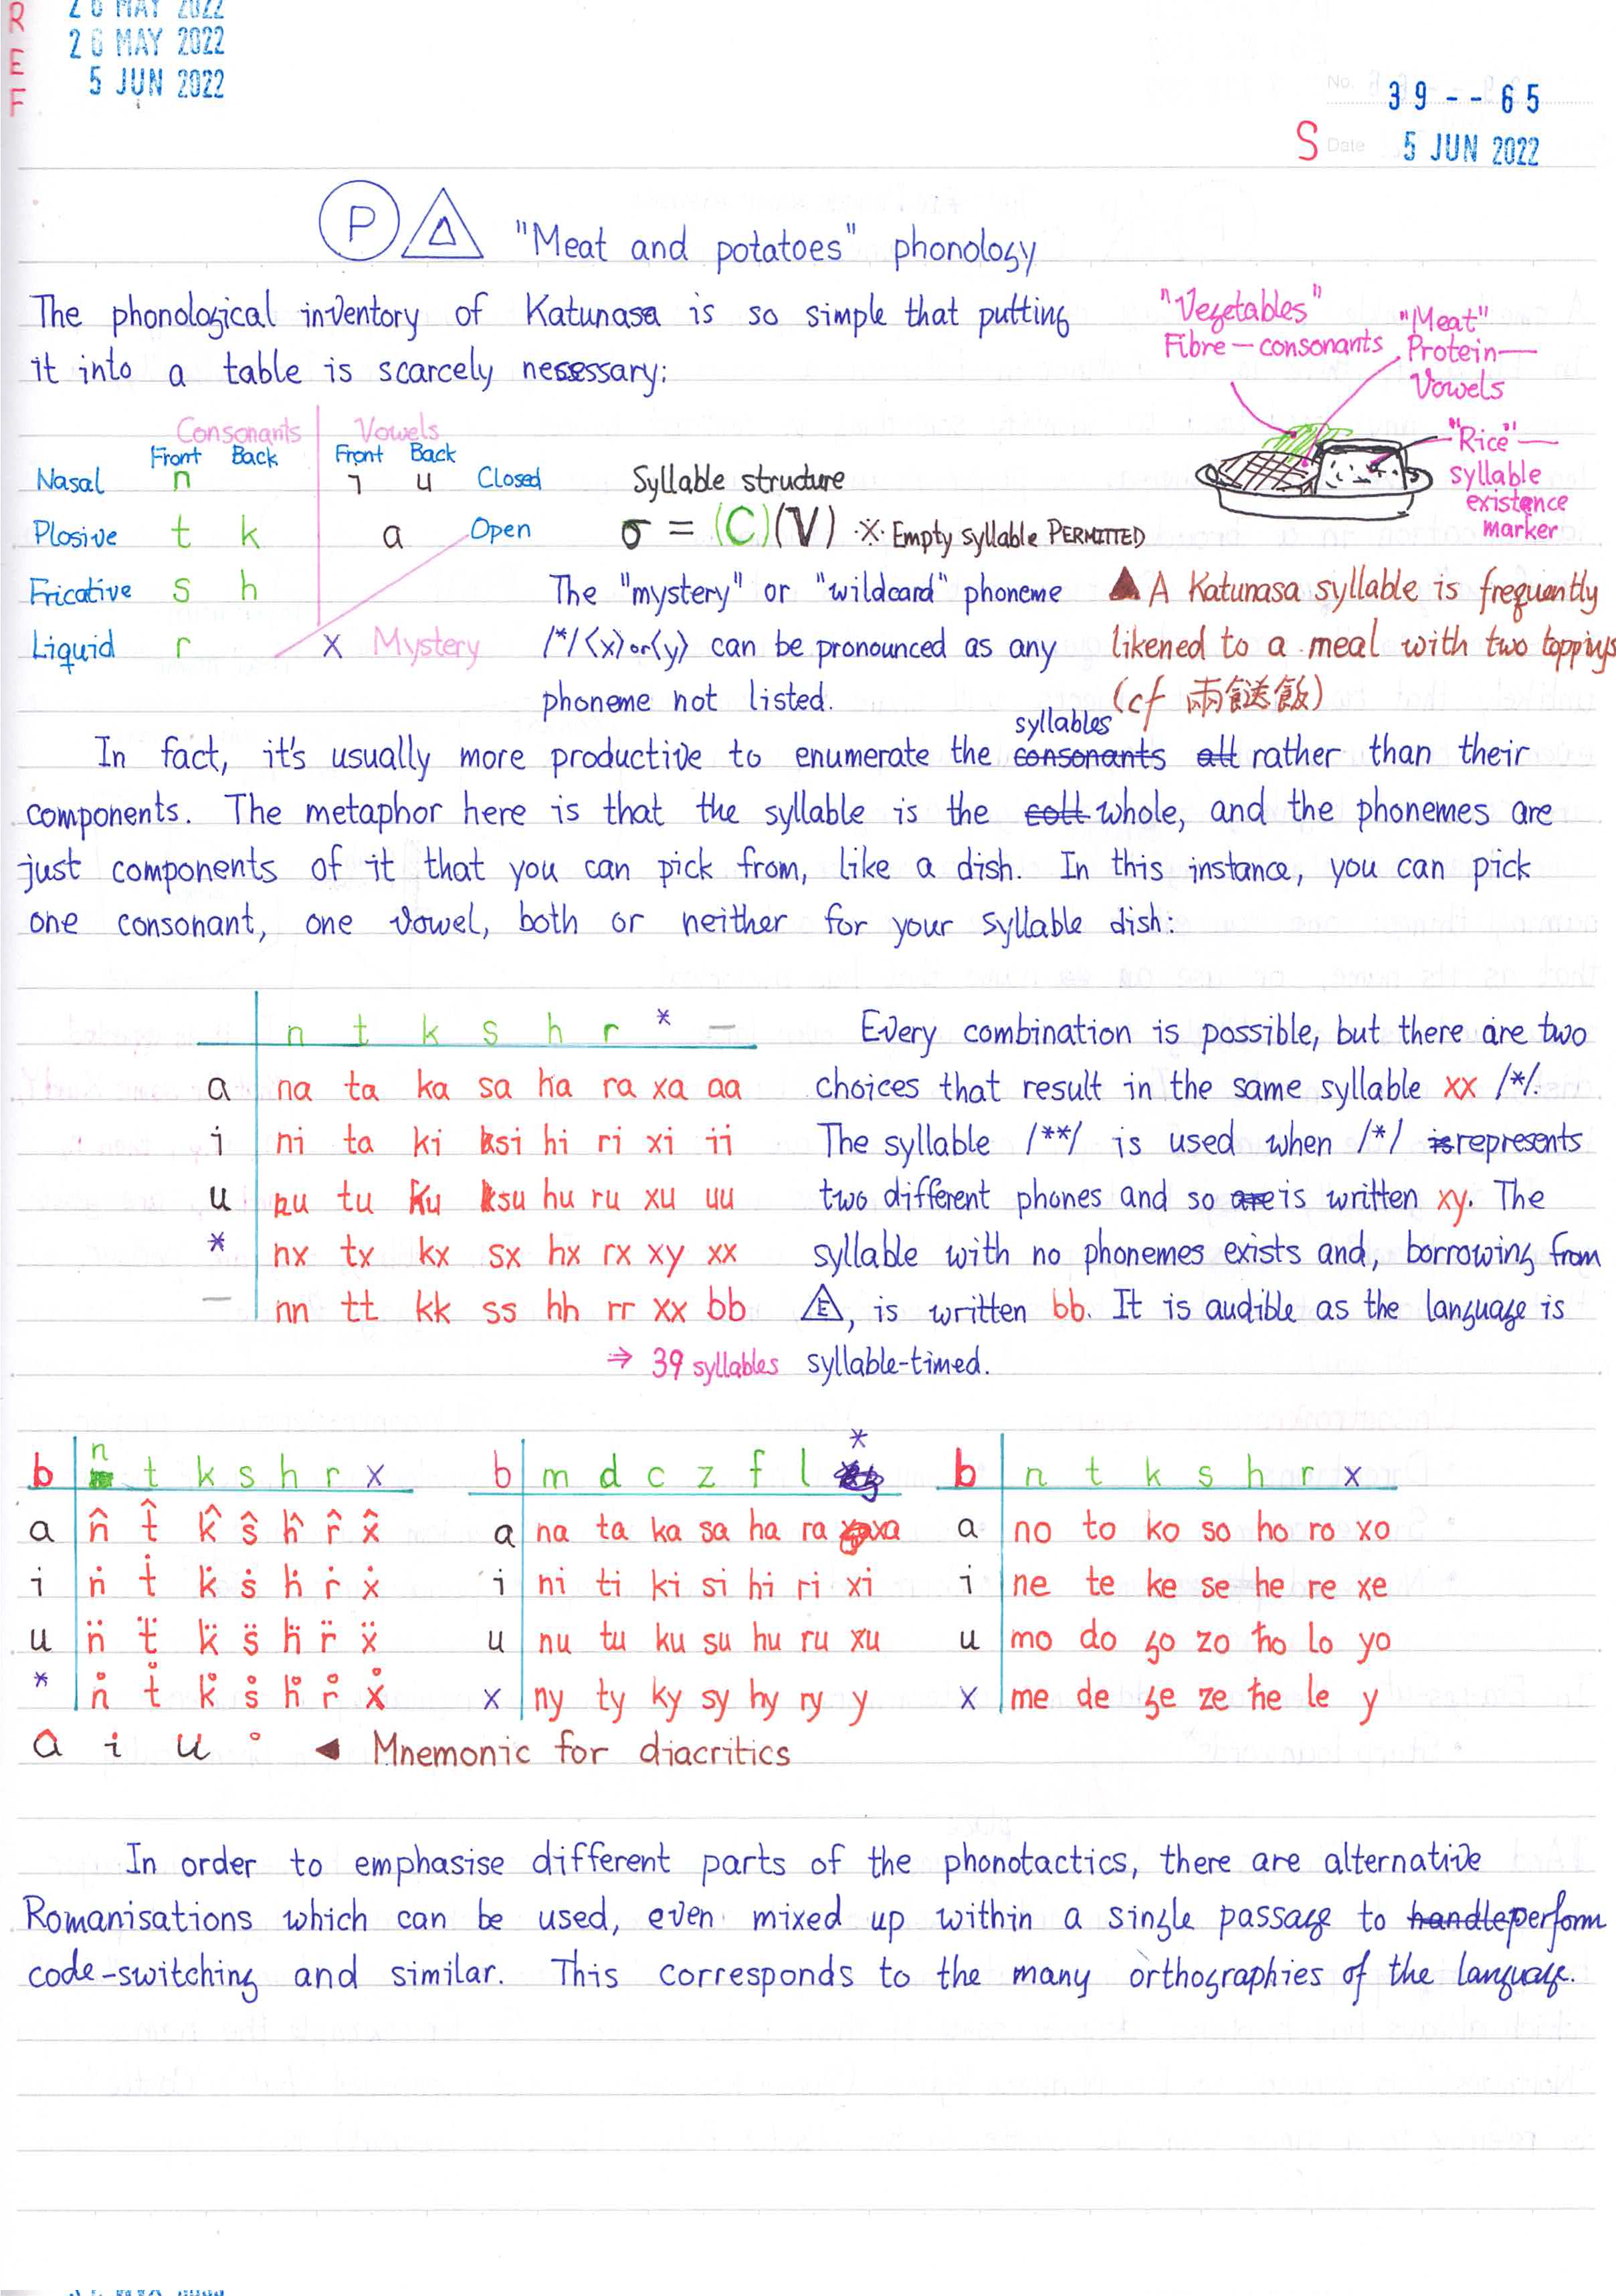 R E F
26 MAY 2022
26 MAY 2022
5 JUN 2022
No. 39--65
S Date 5 JUN 2022
P Δ "Meat and potatoes" phonology
The phonological inventory of Katunasa is so simple that putting
it into a table is scarcely necessary:
"Vegetables"
Fibre — consonants
"Meat"
Protein —
Vowels
"Rice" —
syllable
existence
marker
Consonants Vowels
Front Back Front Back
Nasal n ı u Closed
Plosive t k a Open
Fricative s h
Liquid r x Mystery
Syllable structure
σ = (C)(V) ※ Empty syllable PERMITTED
The "mystery" or "wildcard" phoneme
/*/ ⟨x⟩ or ⟨y⟩ can be pronounced as any
phoneme not listed.
▲ A Katunasa syllable is frequently
likened to a meal with two toppings
(cf 兩餸飯)
syllables
In fact, it's usually more productive to enumerate the consonants all rather than their
components. The metaphor here is that the syllable is the coll whole, and the phonemes are
just components of it that you can pick from, like a dish. In this instance, you can pick
one consonant, one vowel, both or neither for your syllable dish:
n t k s h r * —
a na ta ka sa ha ra xa aa
i ni ta ki si hi ri xi ii
u nu tu ku su hu ru xu uu
* nx tx kx sx hx rx xy xx
— nn tt kk ss hh rr xx bb
⇒ 39 syllables
Every combination is possible, but there are two
choices that result in the same syllable xx /*/.
The syllable /**/ is used when /*/ is represents
two different phones and so are is written xy. The
syllable with no phonemes exists and, borrowing from
E, is written bb. It is audible as the language is
syllable-timed.
b n t k s h r x
a n̂ t̂ k̂ ŝ ĥ r̂ x̂
i ṅ ṫ k̇ ṡ ḣ ṙ ẋ
u n̈ ẗ k̈ s̈ ḧ r̈ ẍ
* n̊ t̊ k̊ s̊ h̊ r̊ x̊
a i u ° ◄ Mnemonic for diacritics
b m d c z f l *
a na ta ka sa ha ra xa
i ni ti ki si hi ri xi
u nu tu ku su hu ru xu
x ny ty ky sy hy ry y
b n t k s h r x
a no to ko so ho ro xo
i ne te ke se he re xe
u mo do go zo ħo lo yo
x me de ge ze ħe le y
In order to emphasise different parts of the phonotactics, there are alternative
Romanisations which can be used, even mixed up within a single passage to handle perform
code-switching and similar. This corresponds to the many orthographies of the language.